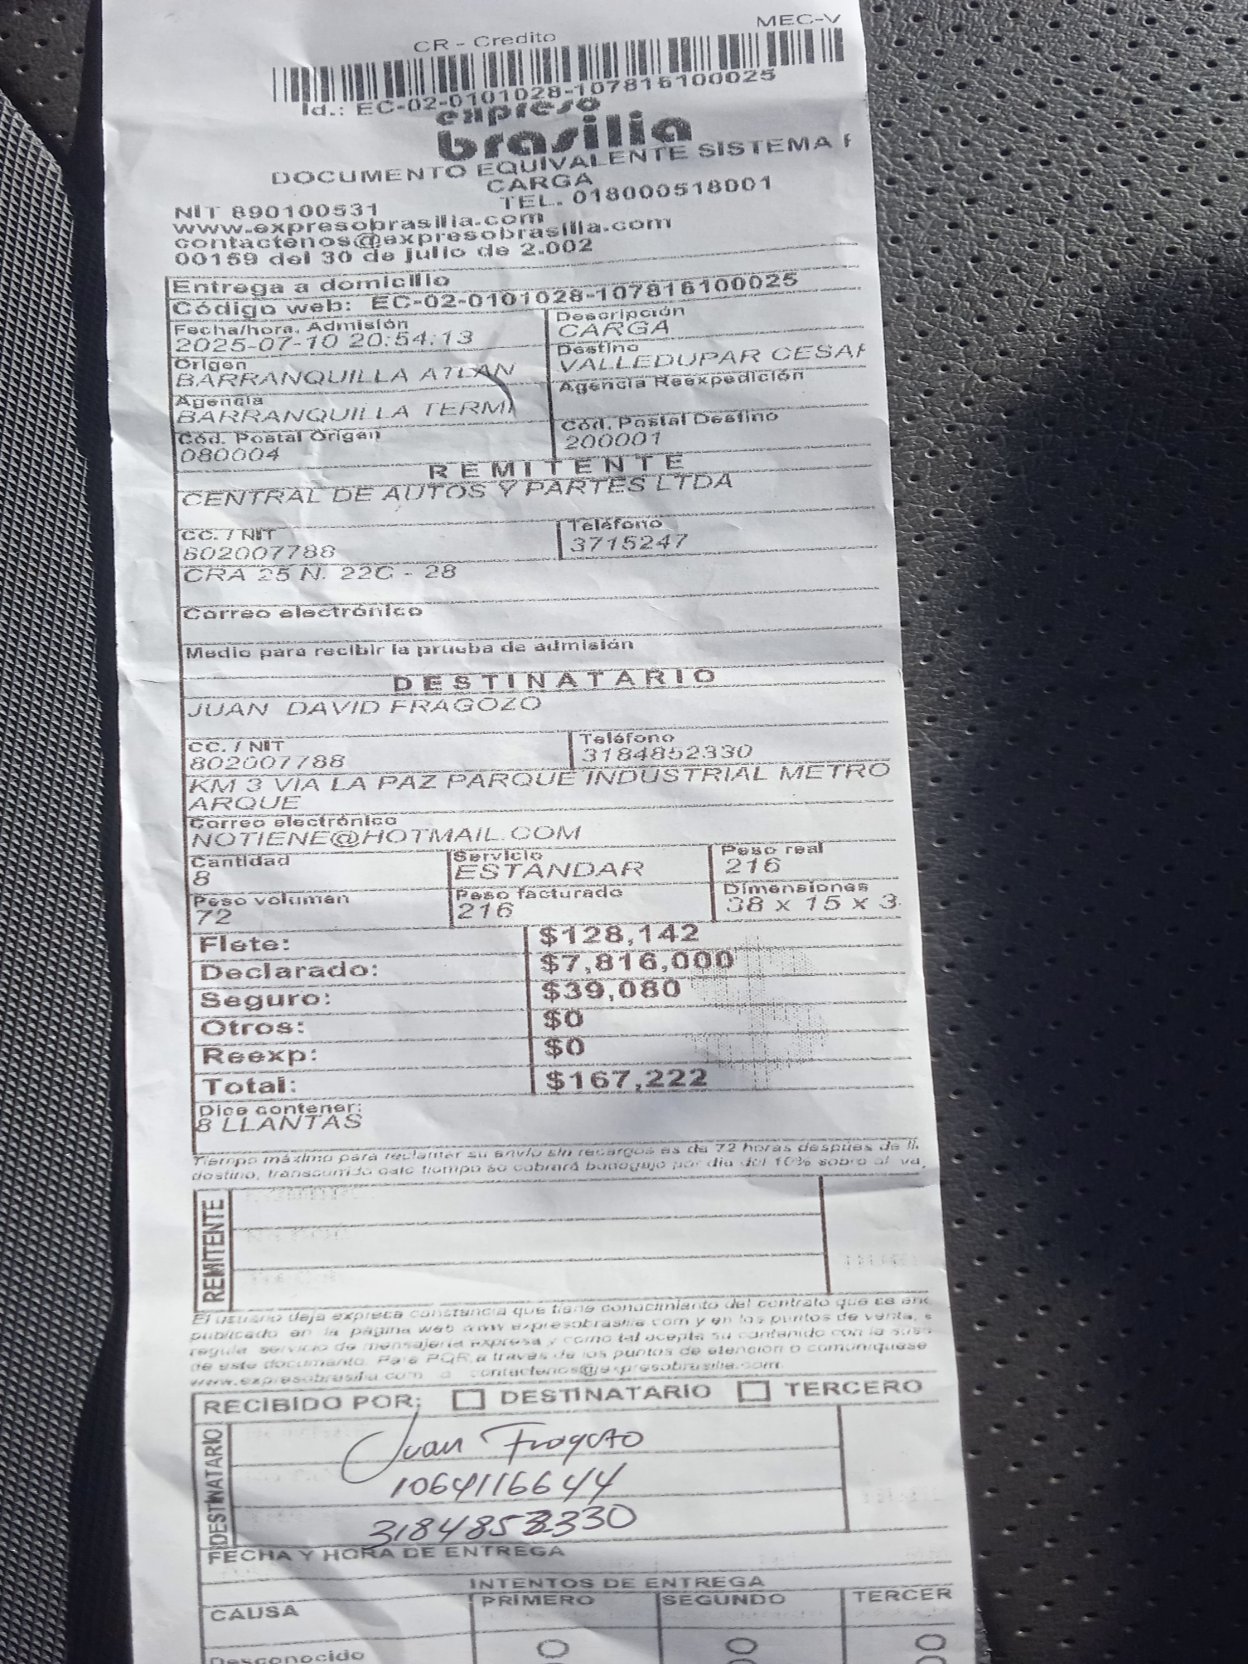 MEC-V
CR - Credito
Id.: EC-02-0101028-107816100025
expreso
brasilia
DOCUMENTO EQUIVALENTE SISTEMA
CARGA
NIT 890100531 TEL. 018000518001
www.expresobrasilia.com
contactenos@expresobrasilia.com
00159 del 30 de julio de 2.002
Entrega a domicilio
Código web: EC-02-0101028-107816100025
Fecha/hora. Admisión Descripción
2025-07-10 20:54:13 CARGA
Origen Destino
BARRANQUILLA ATLAN VALLEDUPAR CESAR
Agencia Agencia Reexpedición
BARRANQUILLA TERMI
Cód. Postal Origen Cód. Postal Destino
080004 200001
REMITENTE
CENTRAL DE AUTOS Y PARTES LTDA
CC. / NIT Teléfono
802007788 3715247
CRA 25 N. 22C - 28
Correo electrónico
Medio para recibir la prueba de admisión
DESTINATARIO
JUAN DAVID FRAGOZO
CC. / NIT Teléfono
802007788 3184852330
KM 3 VIA LA PAZ PARQUE INDUSTRIAL METRO
ARQUE
Correo electrónico
NOTIENE@HOTMAIL.COM
Cantidad Servicio Peso real
8 ESTANDAR 216
Peso volumen Peso facturado Dimensiones
72 216 38 x 15 x 3
Flete: $128,142
Declarado: $7,816,000
Seguro: $39,080
Otros: $0
Reexp: $0
Total: $167,222
Dice contener:
8 LLANTAS
Tiempo máximo para reclamar su envío sin recargos es de 72 horas despues de ll
destino, transcurrido este tiempo se cobrará bodegaje por dia del 10% sobre el va
REMITENTE
El usuario deja expresa constancia que tiene conocimiento del contrato que se
publicado en la página web www.expresobrasilia.com y en los puntos de venta,
regula servicio de mensajería expresa y como tal acepta su contenido con la
de este documento. Para PQR a través de los puntos de atencion o comuniquese
www.expresobrasilia.com o contactenos@expresobrasilia.com
RECIBIDO POR: DESTINATARIO TERCERO
DESTINATARIO
Juan Fragozo
1064116644
3184852330
FECHA Y HORA DE ENTREGA
INTENTOS DE ENTREGA
CAUSA PRIMERO SEGUNDO TERCER
Desconocido